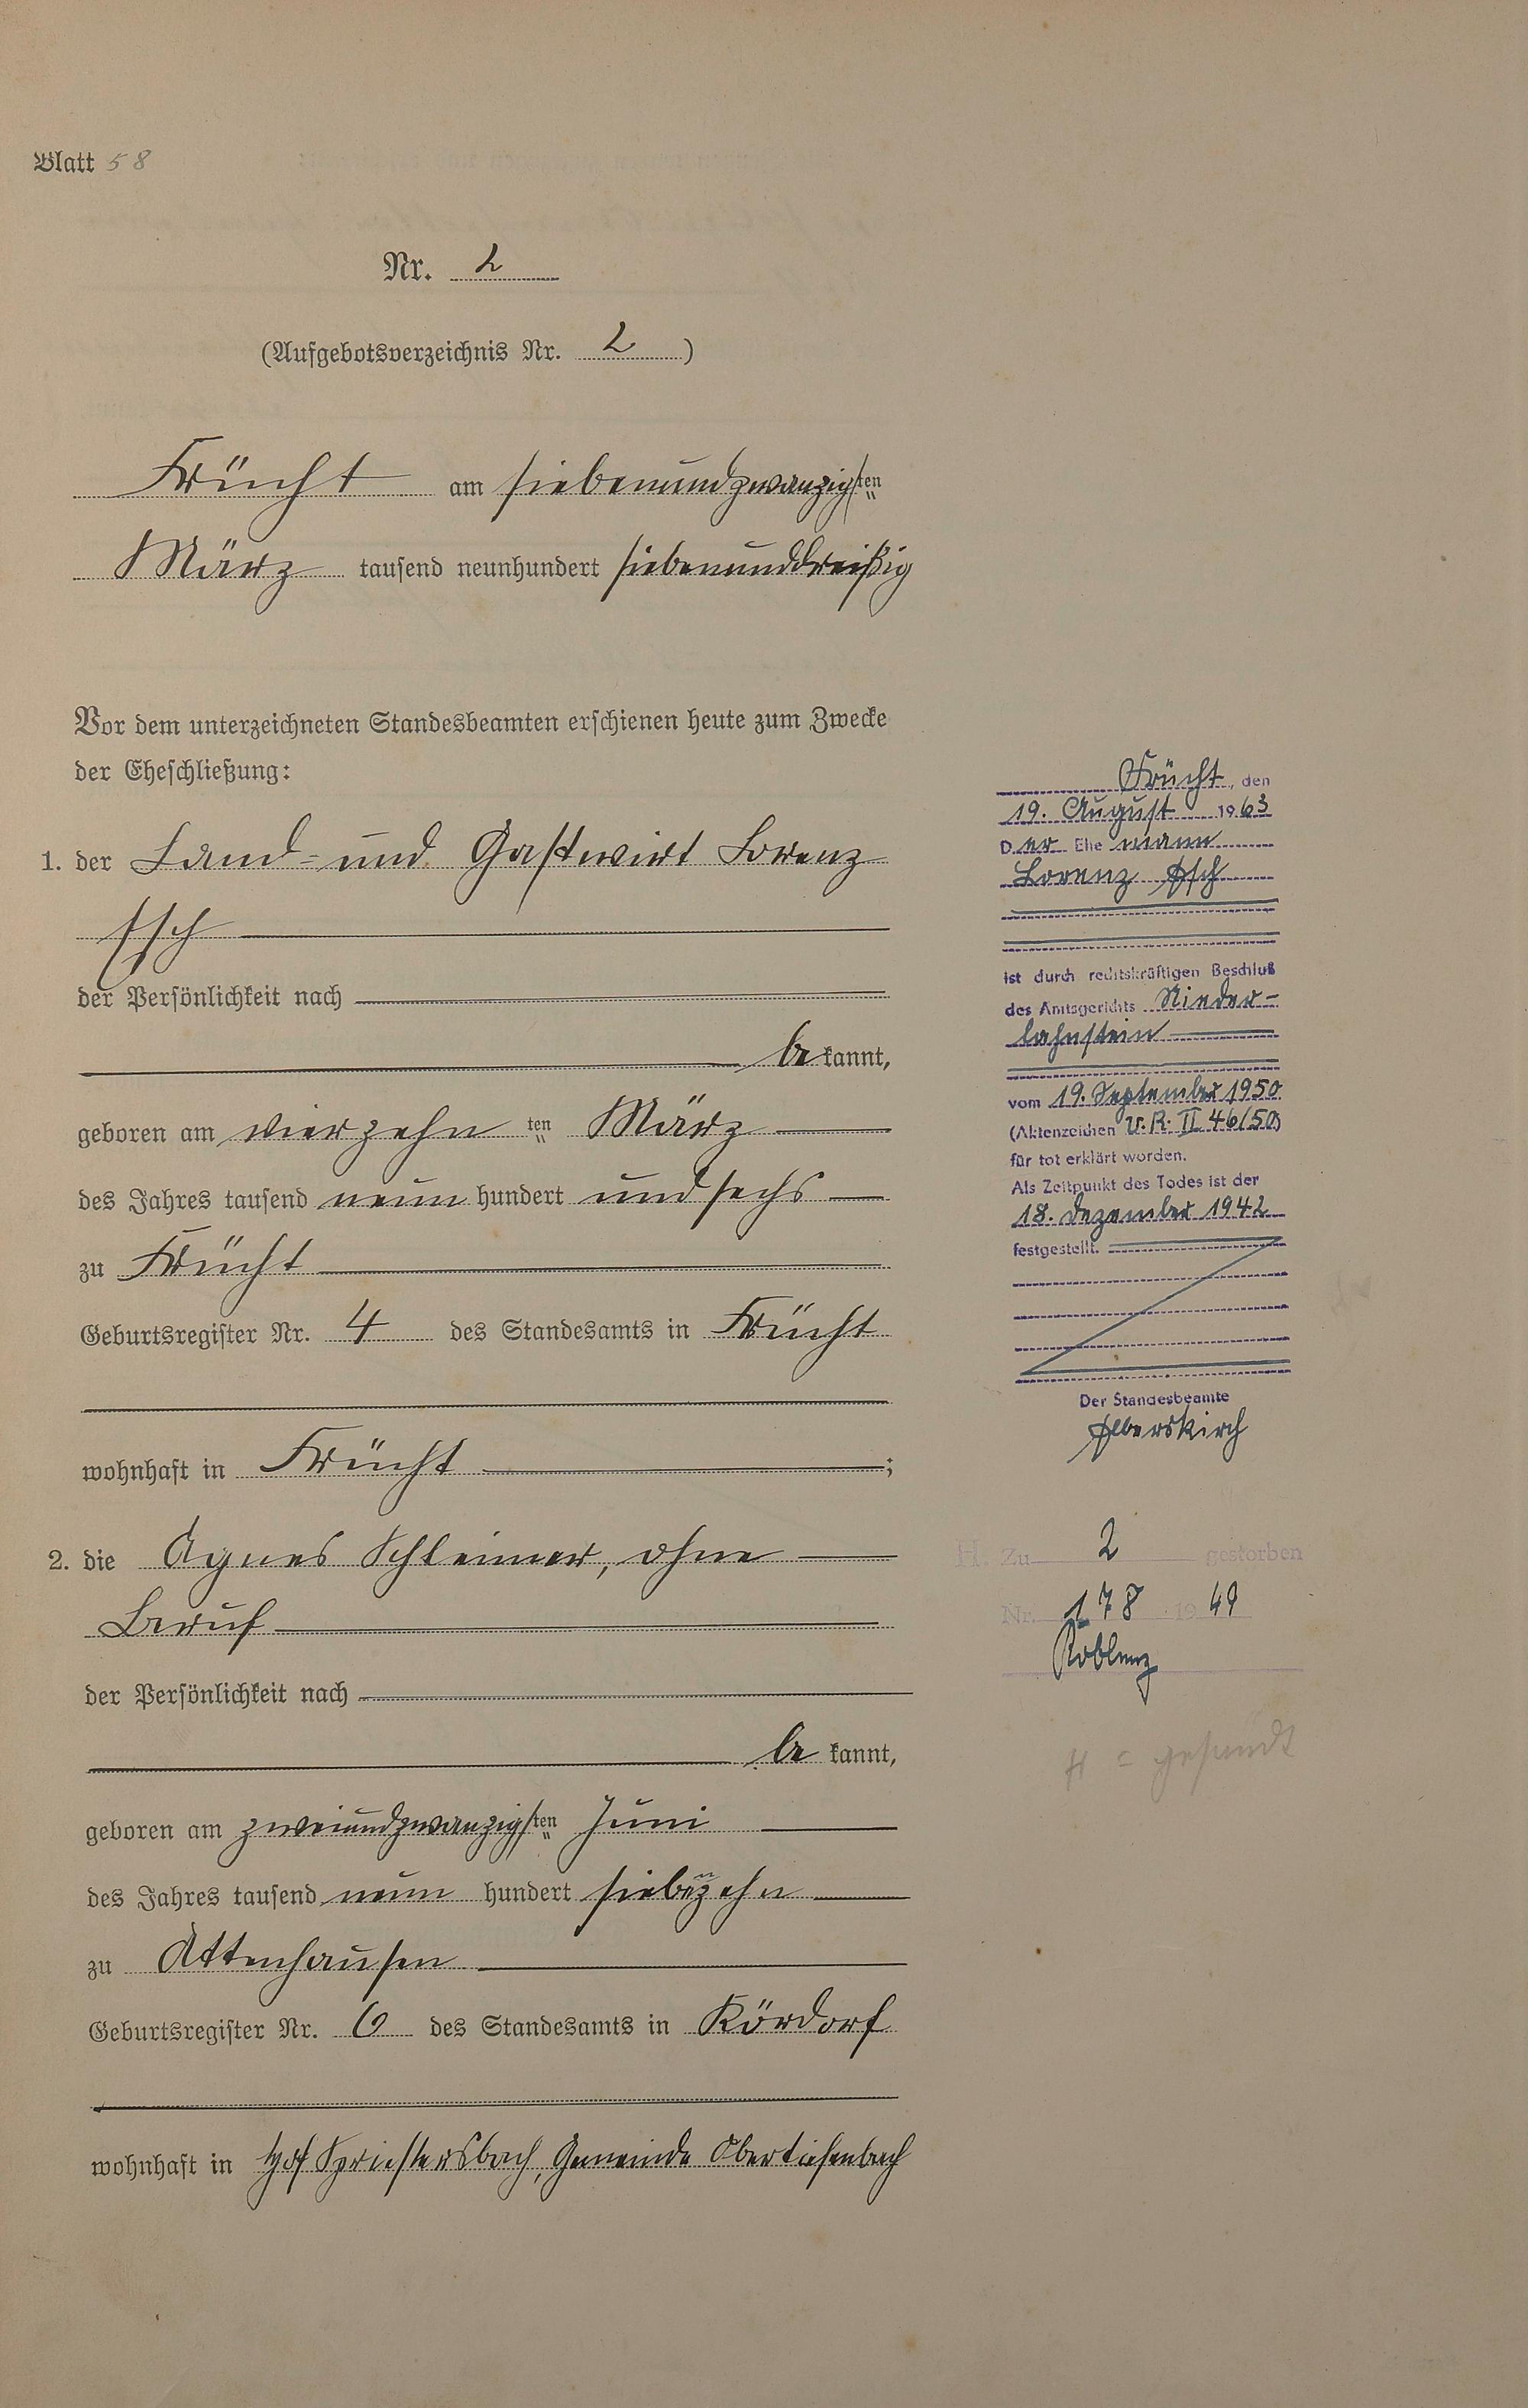 Blatt 58
Nr. 2
(Aufgebotsverzeichnis Nr. 2)
Frücht am siebenundzwanzigsten
März tausend neunhundert siebenunddreißig
Vor dem unterzeichneten Standesbeamten erschienen heute zum Zwecke
der Eheschließung:
1. der Land- und Gastwirt Lorenz
Esch
der Persönlichkeit nach
bekannt,
geboren am vierzehnten März
des Jahres tausend neunhundert und sechs
zu Frücht
Geburtsregister Nr. 4 des Standesamts in Frücht
wohnhaft in Frücht;
2. die Agnes Schleimer, ohne
Beruf
der Persönlichkeit nach
bekannt,
geboren am zweiundzwanzigsten Juni
des Jahres tausend neunhundert siebenzehn
zu Attenhausen
Geburtsregister Nr. 6 des Standesamts in Kördorf
wohnhaft in Hof Spriestersbach, Gemeinde Obertiefenbach
Frücht, den
19. August 1963
Der Ehemann
Lorenz Esch
ist durch rechtskräftigen Beschluß
des Amtsgerichts Nieder-
lahnstein
vom 19. September 1950
(Aktenzeichen U.R. II 46/50)
für tot erklärt worden.
Als Zeitpunkt des Todes ist der
18. Dezember 1942
festgestellt.
Der Standesbeamte
H. Zu 2 gestorben
Nr. 178 1949
Koblenz